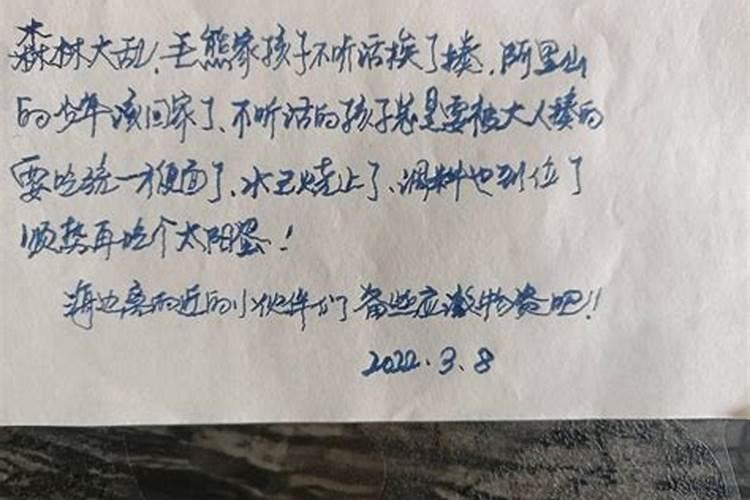 森林大乱,毛熊家孩子不听话挨了揍,阿里山
的少年该回家了、不听话的孩子总是要被大人揍的
要吃统一方便面了、水已烧上了、调料也到位了
顺势再吃个太阳蛋!
海边离的近的小伙伴们备些应激物资吧!!
2022.3.8